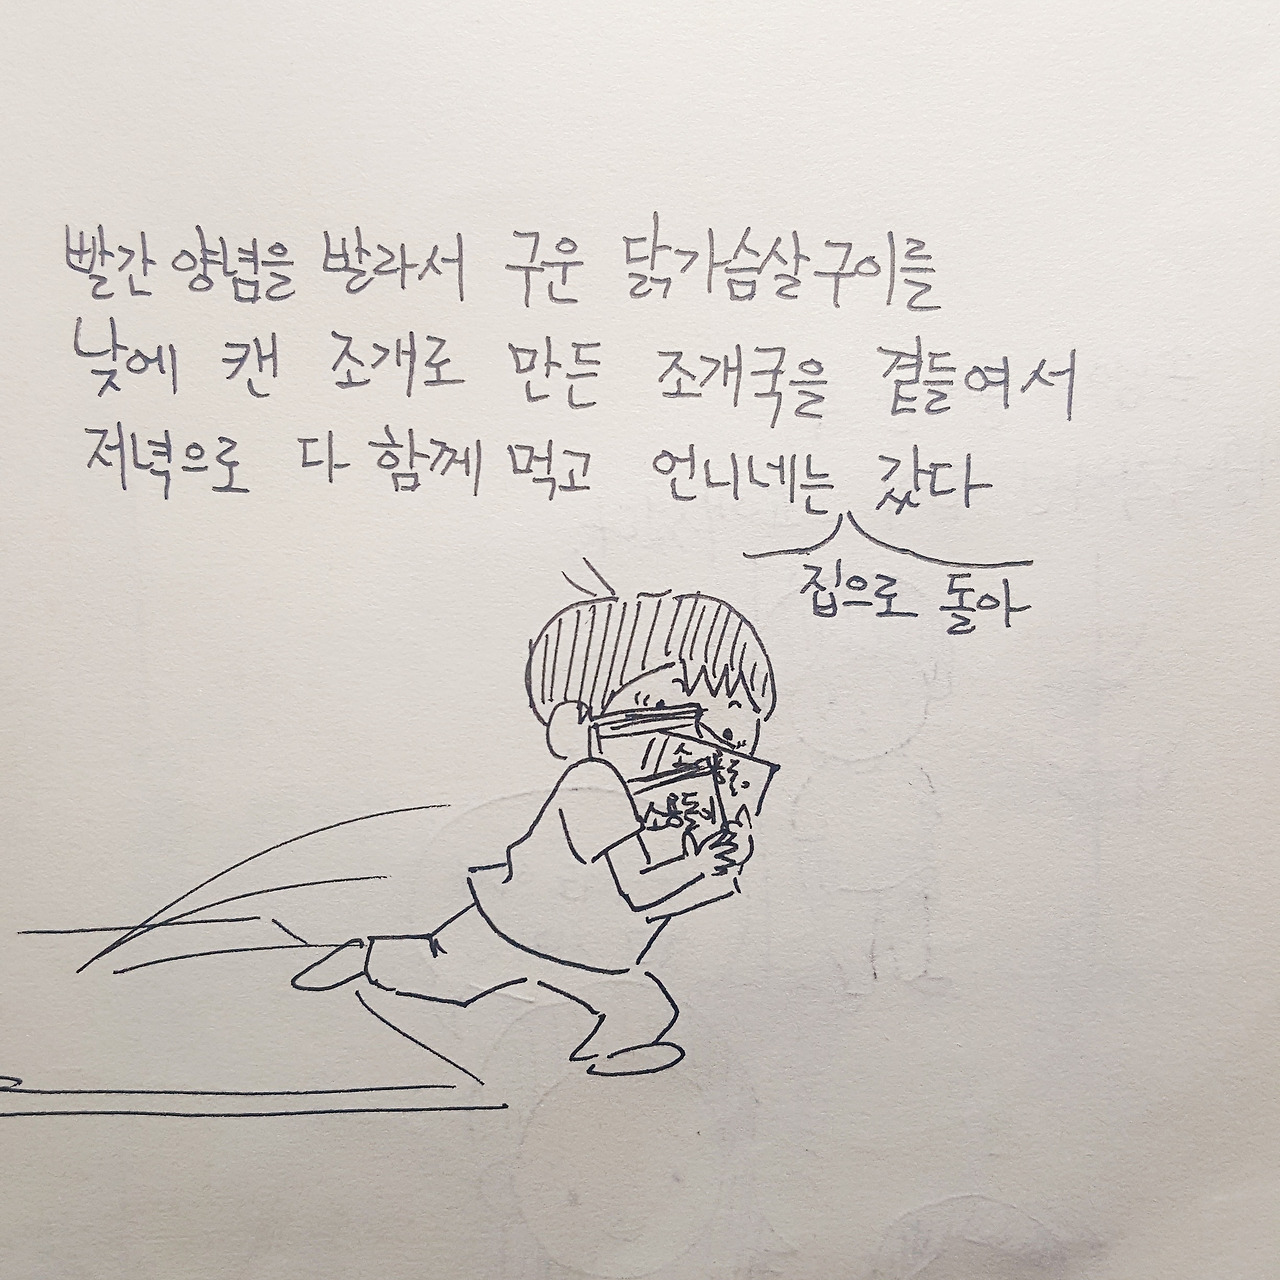 빨간 양념을 발라서 구운 닭가슴살구이를
낮에 캔 조개로 만든 조개국을 곁들여서
저녁으로 다 함께 먹고 언니네는 갔다
집으로 돌아